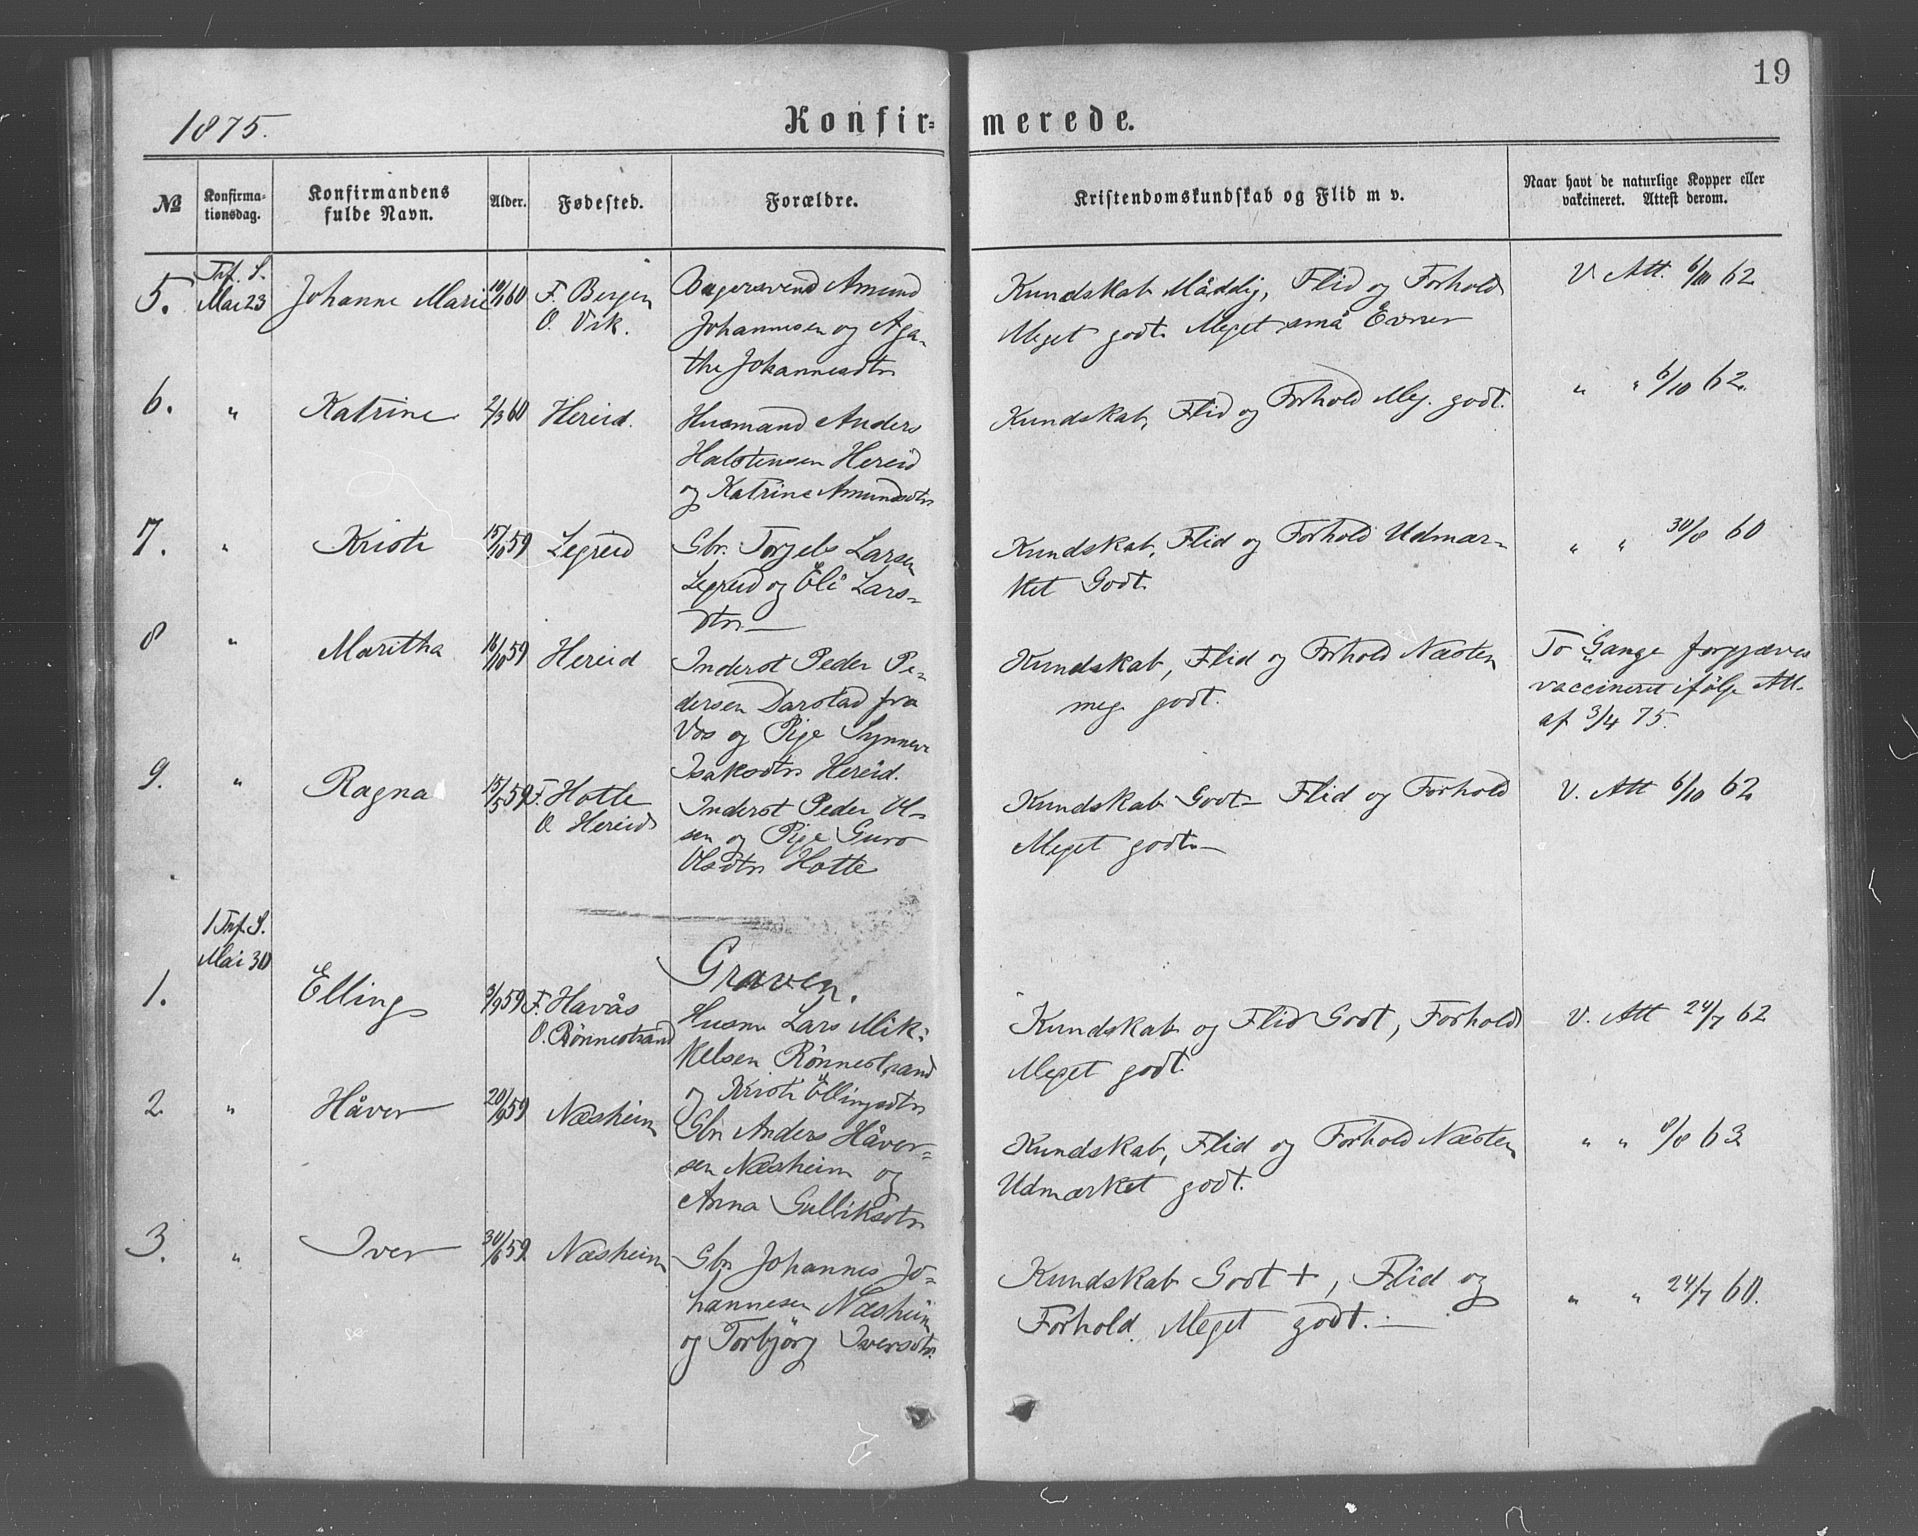 19
1875. Konfir= merede.
№ Konfirma- tionsdag. Konfirmandens fulde Navn. Alder. Fødested. Forældre. Kristendomskundskab og Flid m v. Naar havt de naturlige Kopper eller vakcineret. Attest derom.
5. Trf. S. Mai 23 Johanne Marie 60 F. Bergen Amund Kundskab Måddlig, Flid og Forhold V. Att. 62
O. Vik. Johannesen og Aga- Meget godt. Meget små Evner
the Johannesdtr
6. " Katrine 2/3 60 Hereid. Husmand Anders Kundskab, Flid og Forhold Meg. godt. " " 6/10 62
Halstensen Hereid
og Katrine Amundsdtr
7. " Kristi 15/10 59 Legreid Gbr. Torgels Larsen Kundskab, Flid og Forhold Udmær- " " 30/8 60
Legreid og Eli Lars- ket Godt.
dtr.—
8 " Maritha 16/10 59 Hereid Inderst Peder Pe- Kundskab, Flid og Forhold Næsten To Gange forgjæves
dersen Darstad fra meg. godt. vaccineret ifølge Att.
Vos og Pige Synneve af 3/4 75.
Isaksdtr Hereid.
9. " Ragna 15/5 59 F. Hotle Inderst Peder Ol- Kundskab Godt— Flid og Forhold V. Att 6/10 62
O. Hereid sen og Pige Guro Meget godt.—
Olsdtr Hotle
1 Trf. S.
Mai 30 Graven.
1. Elling 3/9 59 F. Havås Husm Lars Mik- Kundskab og Flid Godt, Forhold V. Att 24/7 62
O. Rönnestrand kelsen Rönnestrand Meget godt.
og Kristi Ellingsdtr
2 " Håver 20/9 59 Næsheim Gbr Anders Håver- Kundskab, Flid og Forhold Næsten " " 63
sen Næsheim og Udmærket godt.
Anna Gulliksdtr
3. " Iver 30/6 59. Næsheim Gbr Johannes Jo- Kundskab Godt +, Flid og " " 24/7 60.
hannesen Næsheim Forhold. Meget godt.—
og Torbjörg Iversdtr.